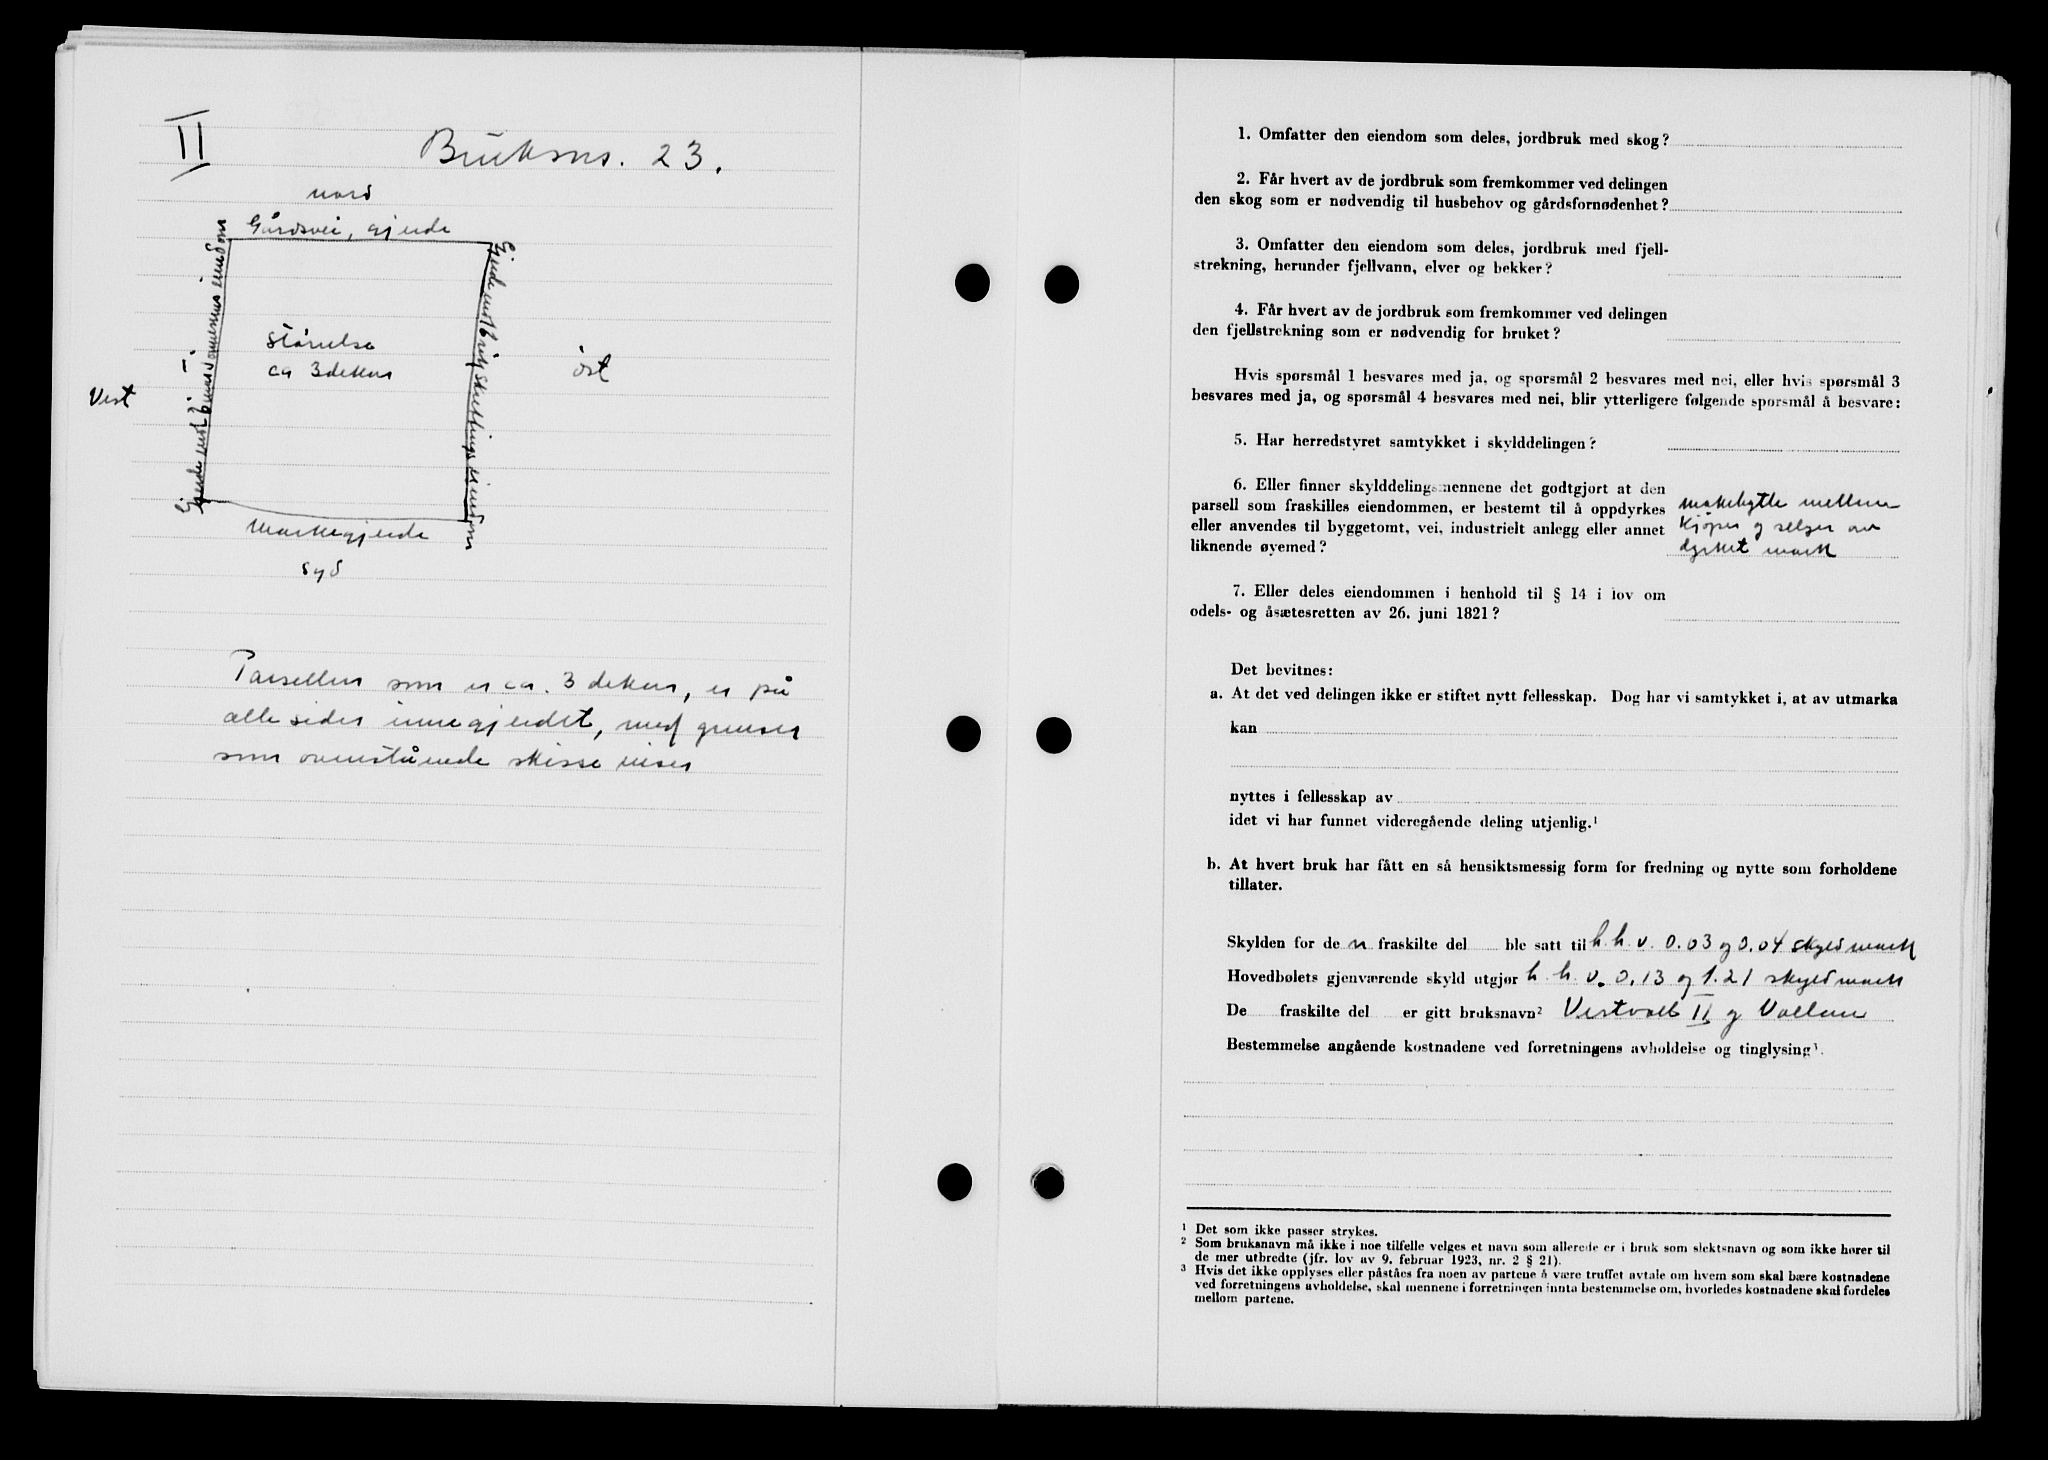 II
Bruksnr. 23.
nord
Gårdsvei, gjerde
Vest
størrelse
ca 3 dekar
øst
Markegjerde
syd
Parsellen som er ca. 3 dekar, er på
alle sider innegjerdet, med grenser
som ovenstående skisse viser
1. Omfatter den eiendom som deles, jordbruk med skog?
2. Får hvert av de jordbruk som fremkommer ved delingen
den skog som er nødvendig til husbehov og gårdsfornødenhet?
3. Omfatter den eiendom som deles, jordbruk med fjell-
strekning, herunder fjellvann, elver og bekker?
4. Får hvert av de jordbruk som fremkommer ved delingen
den fjellstrekning som er nødvendig for bruket?
Hvis spørsmål 1 besvares med ja, og spørsmål 2 besvares med nei, eller hvis spørsmål 3
besvares med ja, og spørsmål 4 besvares med nei, blir ytterligere følgende spørsmål å besvare:
5. Har herredstyret samtykket i skylddelingen?
6. Eller finner skylddelingsmennene det godtgjort at den
parsell som fraskilles eiendommen, er bestemt til å oppdyrkes
eller anvendes til byggetomt, vei, industrielt anlegg eller annet
liknende øyemed?
makebytte mellem
kjøper og selger av
dyrket mark
7. Eller deles eiendommen i henhold til § 14 i lov om
odels- og åsætesretten av 26. juni 1821?
Det bevitnes:
a. At det ved delingen ikke er stiftet nytt fellesskap. Dog har vi samtykket i, at av utmarka
kan
nyttes i fellesskap av
idet vi har funnet videregående deling utjenlig.¹
b. At hvert bruk har fått en så hensiktsmessig form for fredning og nytte som forholdene
tillater.
Skylden for de n fraskilte del ble satt til h.h.v. 0.03 og 0.04 skyldmark
Hovedbølets gjenværende skyld utgjør h.h.v. 0.13 og 1.21 skyldmark
De fraskilte del er gitt bruksnavn² Vestvoll II og Vollan
Bestemmelse angående kostnadene ved forretningens avholdelse og tinglysing³.
¹ Det som ikke passer strykes.
² Som bruksnavn må ikke i noe tilfelle velges et navn som allerede er i bruk som slektsnavn og som ikke hører til
de mer utbredte (jfr. lov av 9. februar 1923, nr. 2 § 21).
³ Hvis det ikke opplyses eller påståes fra noen av partene å være truffet avtale om hvem som skal bære kostnadene
ved forretningens avholdelse, skal mennene i forretningen innta bestemmelse om, hvorledes kostnadene skal fordeles
mellom partene.